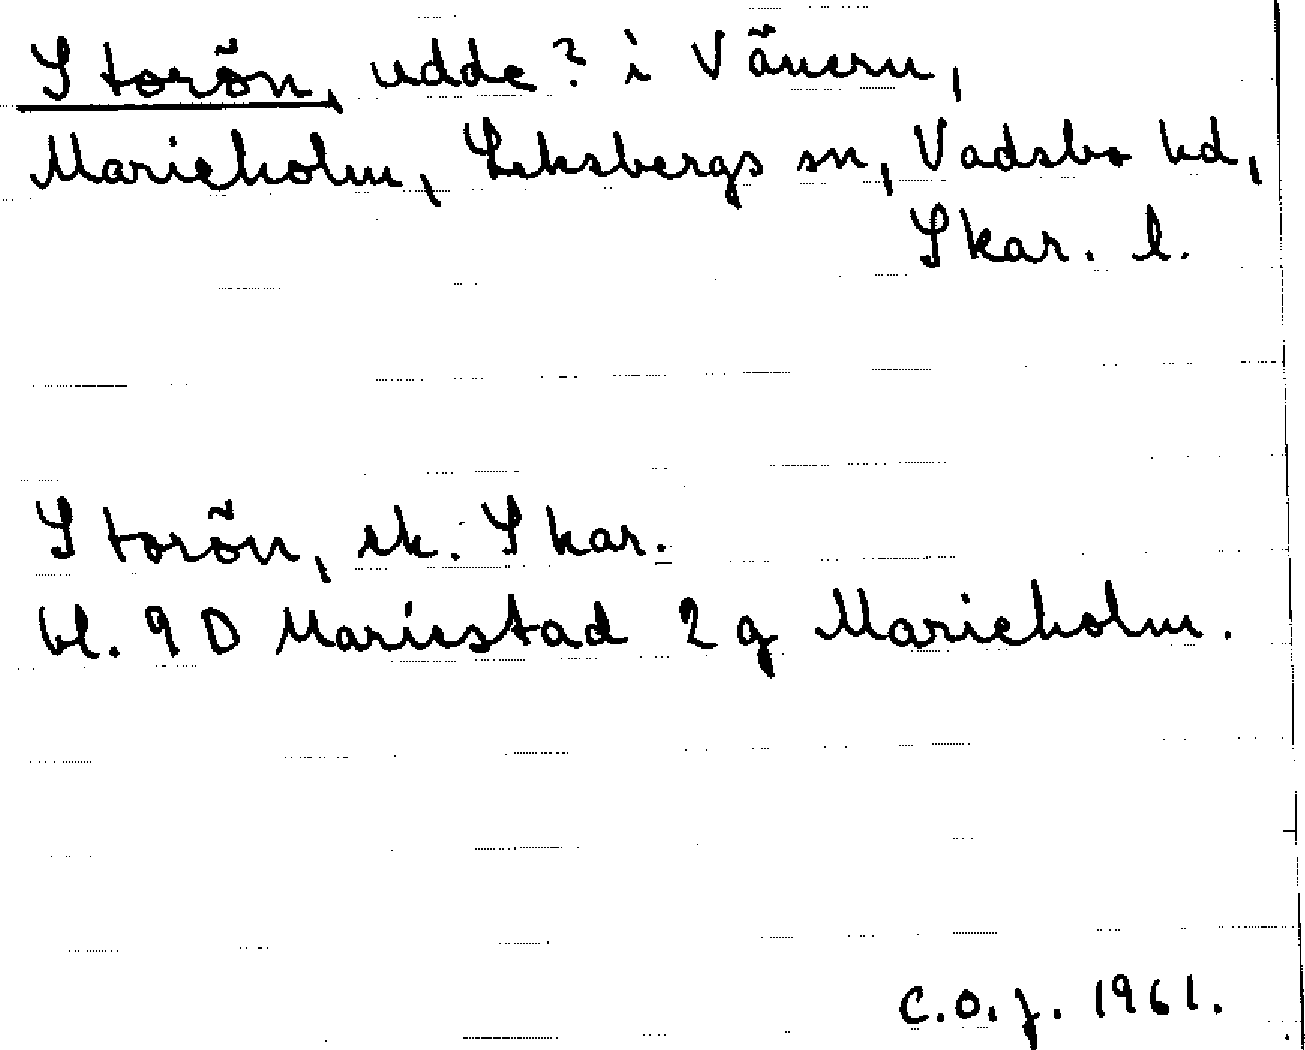 Storön, udde? i Vänern,
Marieholm, Leksbergs sn, Vadsbo hd,
Skar. l.
Storön, ek. Skar.
bl. 9 D Mariestad 2 g Marieholm.
C.O.J. 1961.